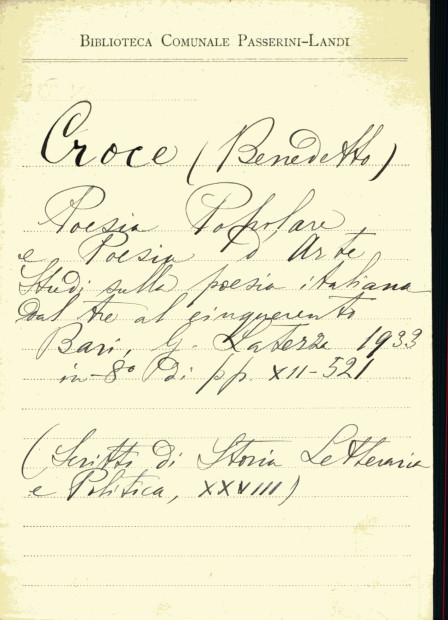 BIBLIOTECA COMUNALE PASSERINI-LANDI
Croce (Benedetto)
Poesia Popolare
e Poesia d'Arte
Studi sulla poesia italiana
dal tre al cinquecento
Bari, G. Laterza 1933
in-8° di pp. XII-521
(Scritti di Storia Letteraria
e Politica, XXVIII)